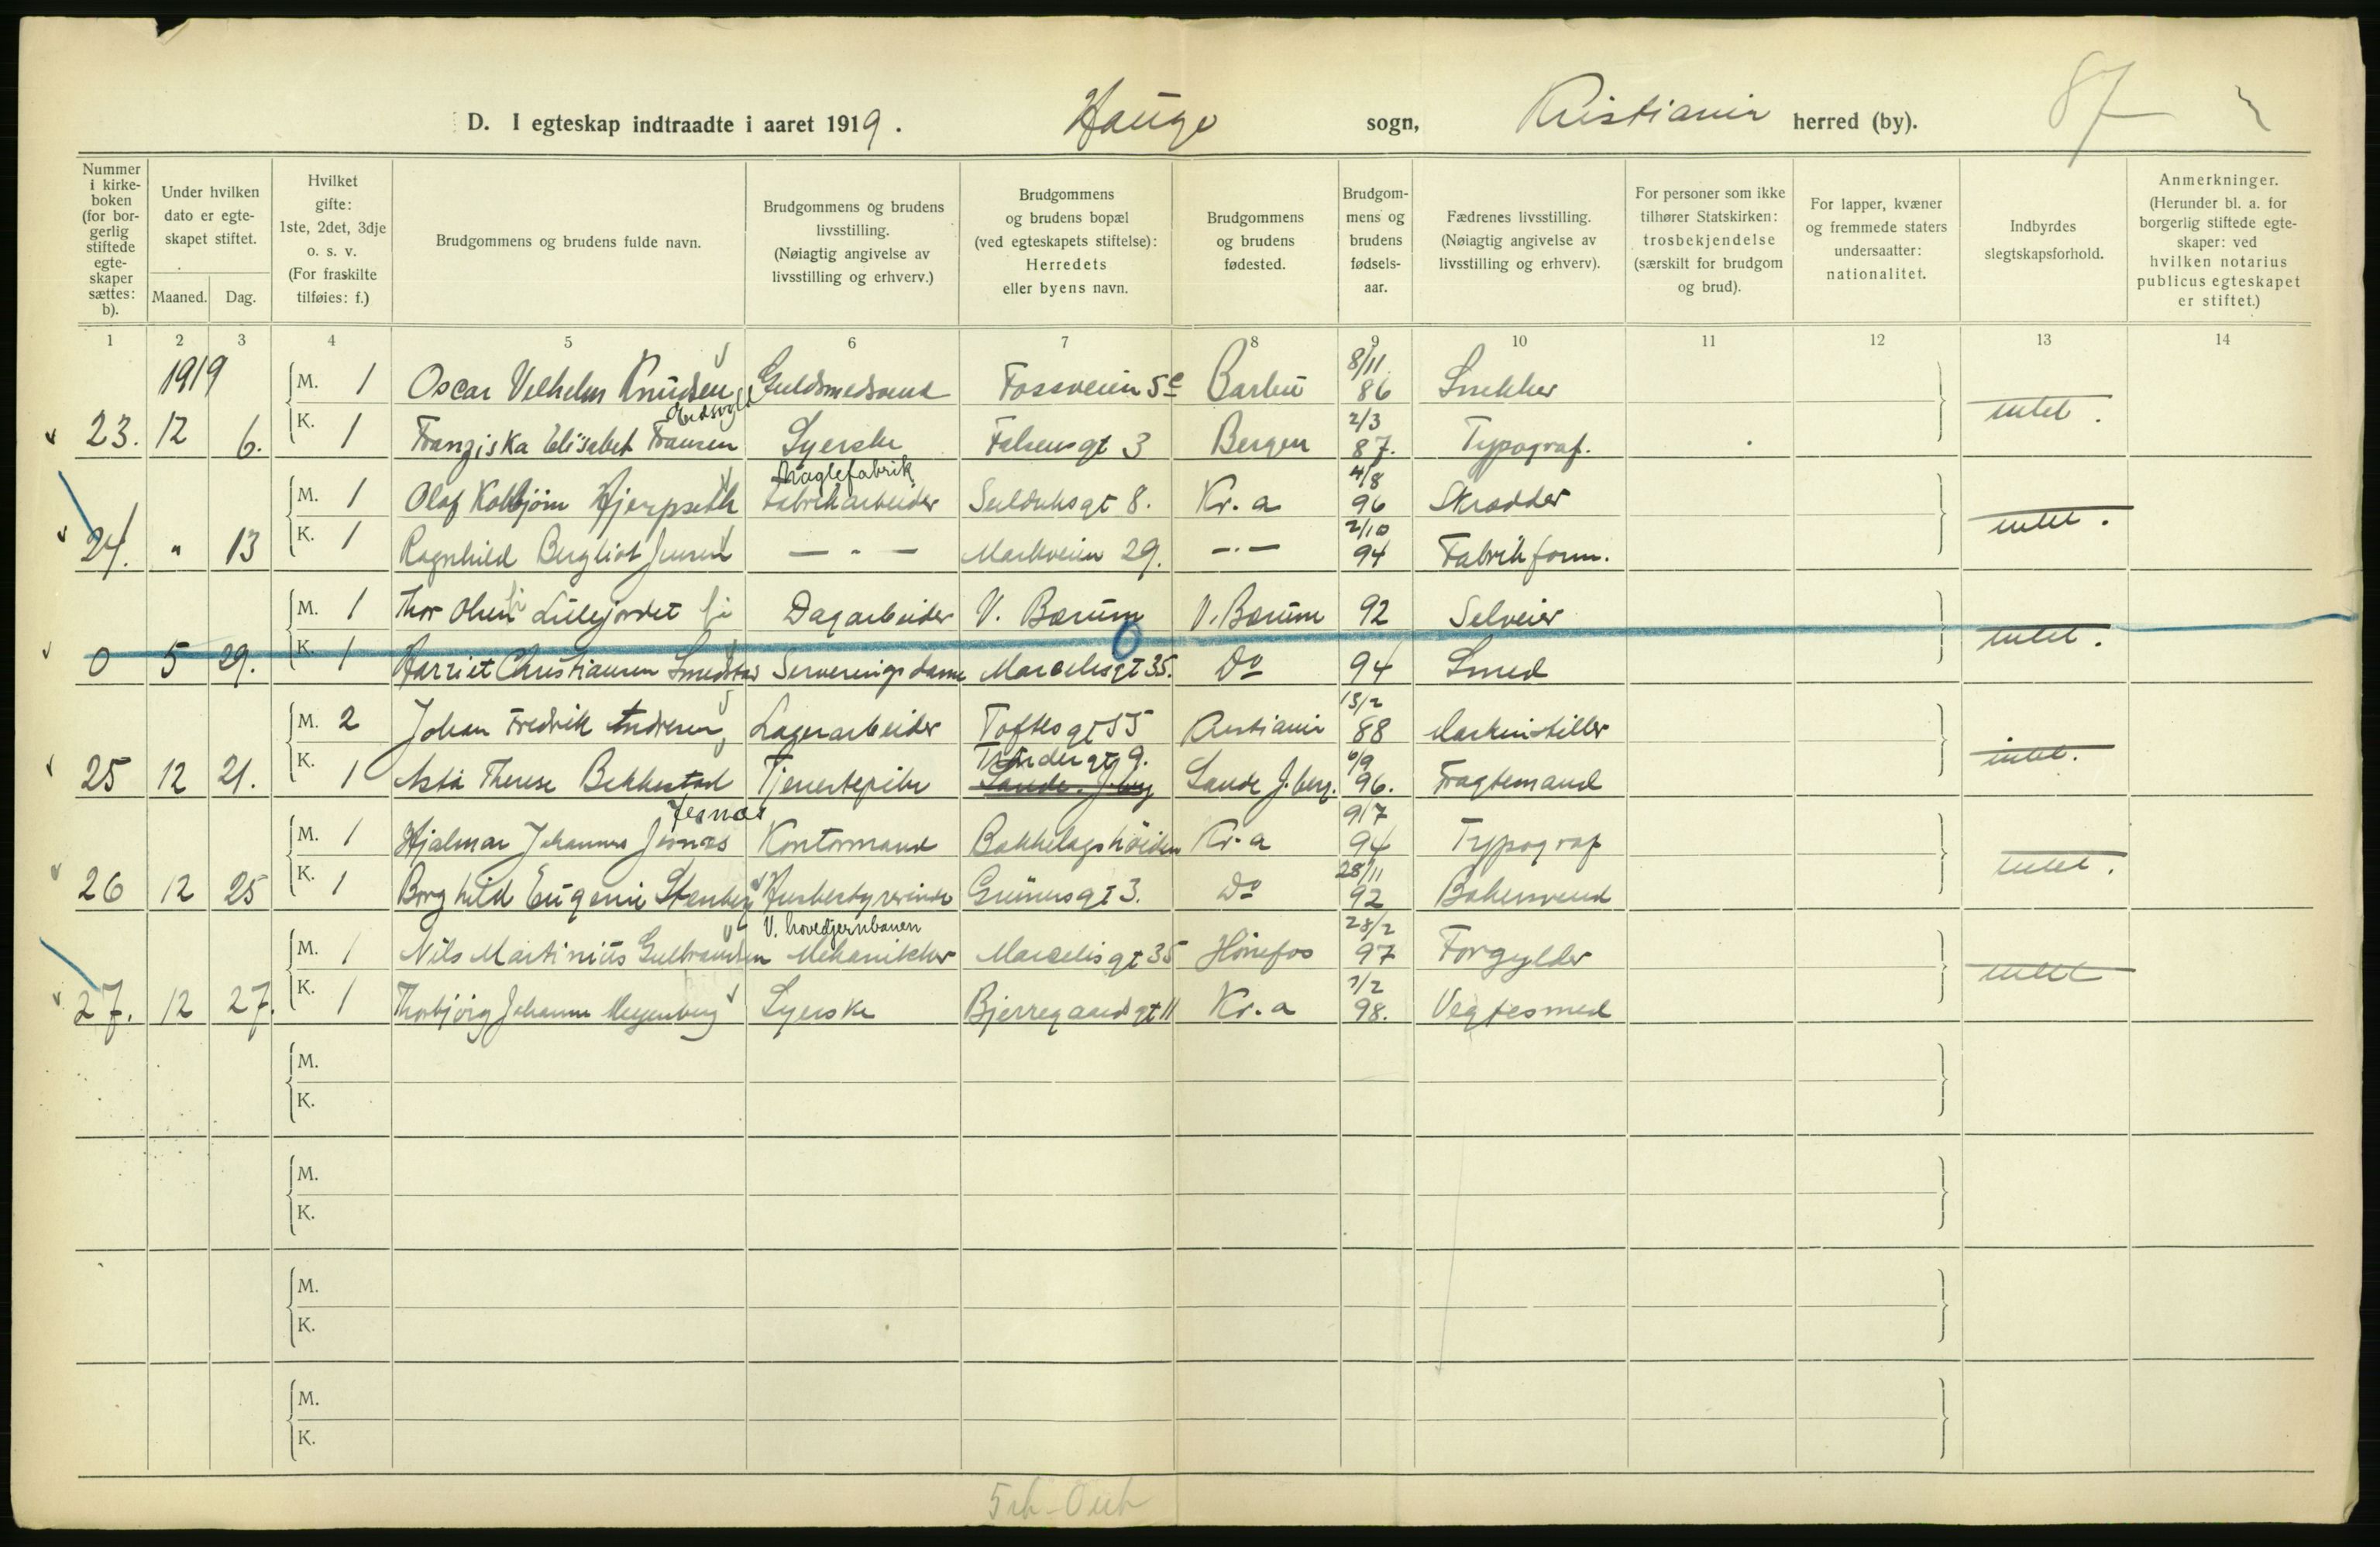 D. I egteskap indtraadte i aaret 1919. Hauge sogn, Kristiania herred (by). 87
Nummer i kirke- boken (for bor- gerlig stiftede egte- skaper sættes: b).
Under hvilken dato er egte- skapet stiftet.
Maaned. Dag.
Hvilket gifte: 1ste, 2det, 3dje o. s. v. (For fraskilte tilføies: f.)
Brudgommens og brudens fulde navn.
Brudgommens og brudens livsstilling. (Nøiagtig angivelse av livsstilling og erhverv.)
Brudgommens og brudens bopæl (ved egteskapets stiftelse): Herredets eller byens navn.
Brudgommens og brudens fødested.
Brudgom- mens og brudens fødsels- aar.
Fædrenes livsstilling. (Nøiagtig angivelse av livsstilling og erhverv).
For personer som ikke tilhører Statskirken: trosbekjendelse (særskilt for brudgom og brud).
For lapper, kvæner og fremmede staters undersaatter: nationalitet.
Indbyrdes slegtskapsforhold.
Anmerkninger. (Herunder bl. a. for borgerlig stiftede egte- skaper: ved hvilken notarius publicus egteskapet er stiftet.)
1 2 3 4 5 6 7 8 9 10 11 12 13 14
1919 M. 1 Oscar Vilhelm Knudsen Guldsmedsvend Fossveien 5c Barbu 8/11 86 Snekker intet.
23. 12 6. K. 1 Franziska Elisabet Fransen Eidsvold Syerske Falsensgt 3 Bergen 2/3 87. Typograf.
M. 1 Olaf Kolbjörn Hjerpseth Naglefabrik Fabrikarbeider Seilduksgt 8. Kr.a 4/8 96 Skrædder intet.
24. " 13 K. 1 Ragnhild Bergliot Jensen — " — Markveien 29. —.— 2/10 94 Fabrikform.
M. 1 Thor Olsen Lillejordet Dagarbeider V. Bærum V. Bærum 92 Selveier intet.
0 5 29. K. 1 Harriet Christiansen Smedstad Serveringsdame Marcelisgt 35. Do 94 Smed
M. 2 Johan Fredrik Andresen, Lagerarbeider Toftesgt 55 Kristiania 13/2 88 Maskinstiller intet.
25 12 21. K. 1 Asta Therese Bekkestad Tjenestepike Tøndergt 9. Sande J.berg Sande J.berg. 6/9 96. Fragtemand
M. 1 Hjalmar Johannes Jesnæs Jesnæs Kontormand Bækkelagshöiden Kr.a 9/7 94 Typograf intet.
26 12 25 K. 1 Borghild Eugenie Stenberg Husbestyrerinde Grünersgt 3. Do 28/11 92 Bakersvend
M. 1 Nils Martinius Gulbrandsen V. hovedjernbanen Mekaniker Marcelisgt 35 Hönefos 28/2 97 Forgylder intet
27. 12 27. K. 1 Thorbjörg Johanne Meyenberg Syerske Bjerregaardsgt 11 Kr.a 7/2 98. Vegtesmed
M.
K.
M.
K.
M.
K.
M.
K.